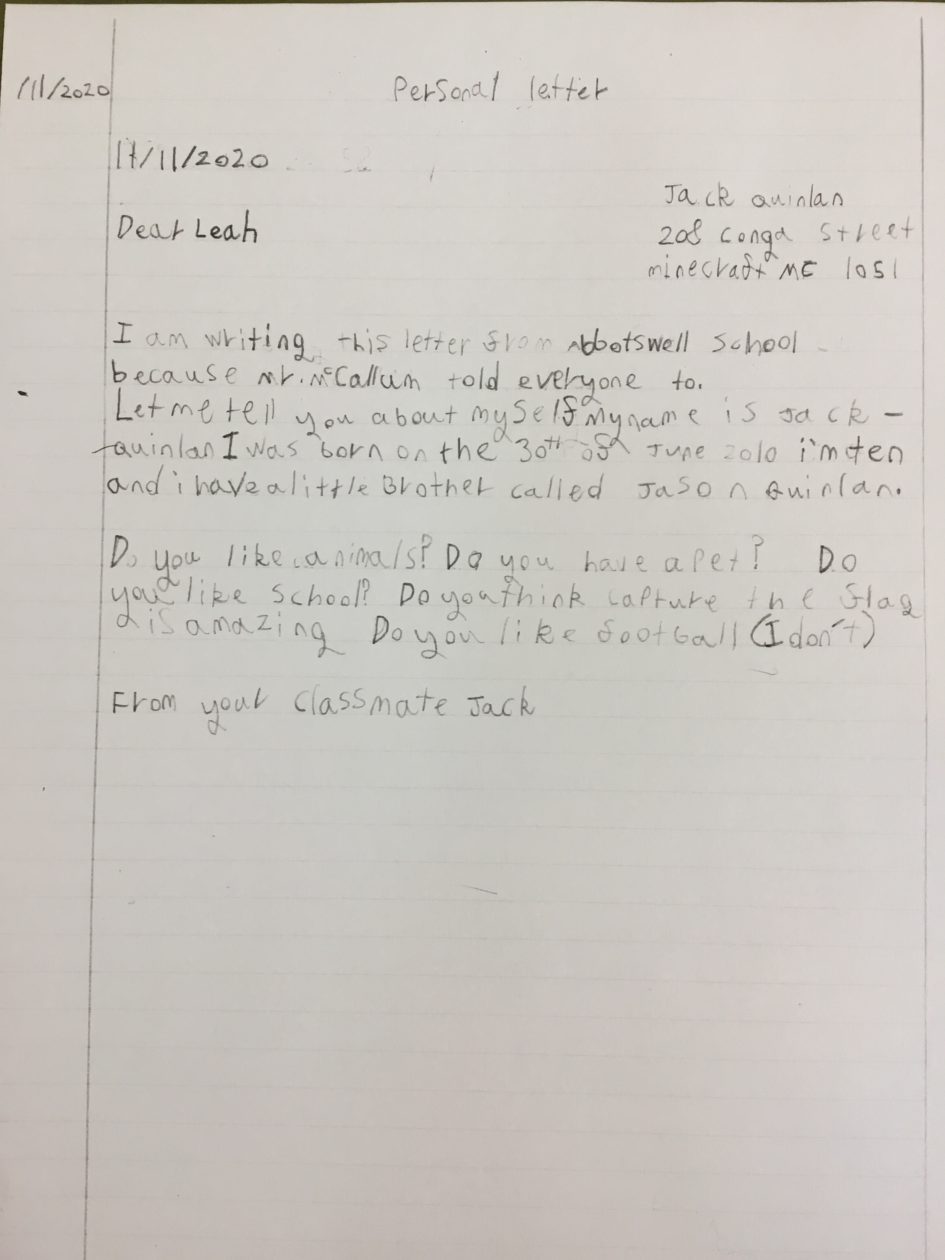 /11/2020
Personal letter
17/11/2020
Jack Quinlan
Dear Leah
208 conga Street
minecraft MC 1051
I am writing this letter from Abbotswell School
because Mr. McCallum told everyone to.
Let me tell you about myself My name is Jack -
Quinlan I was born on the 30th of June 2010 i'm ten
and i have a little Brother called Jason Quinlan.
Do you like animals? Do you have a Pet? Do
you like School? Do you think capture the flag
is amazing Do you like football (I don't)
From your classmate Jack